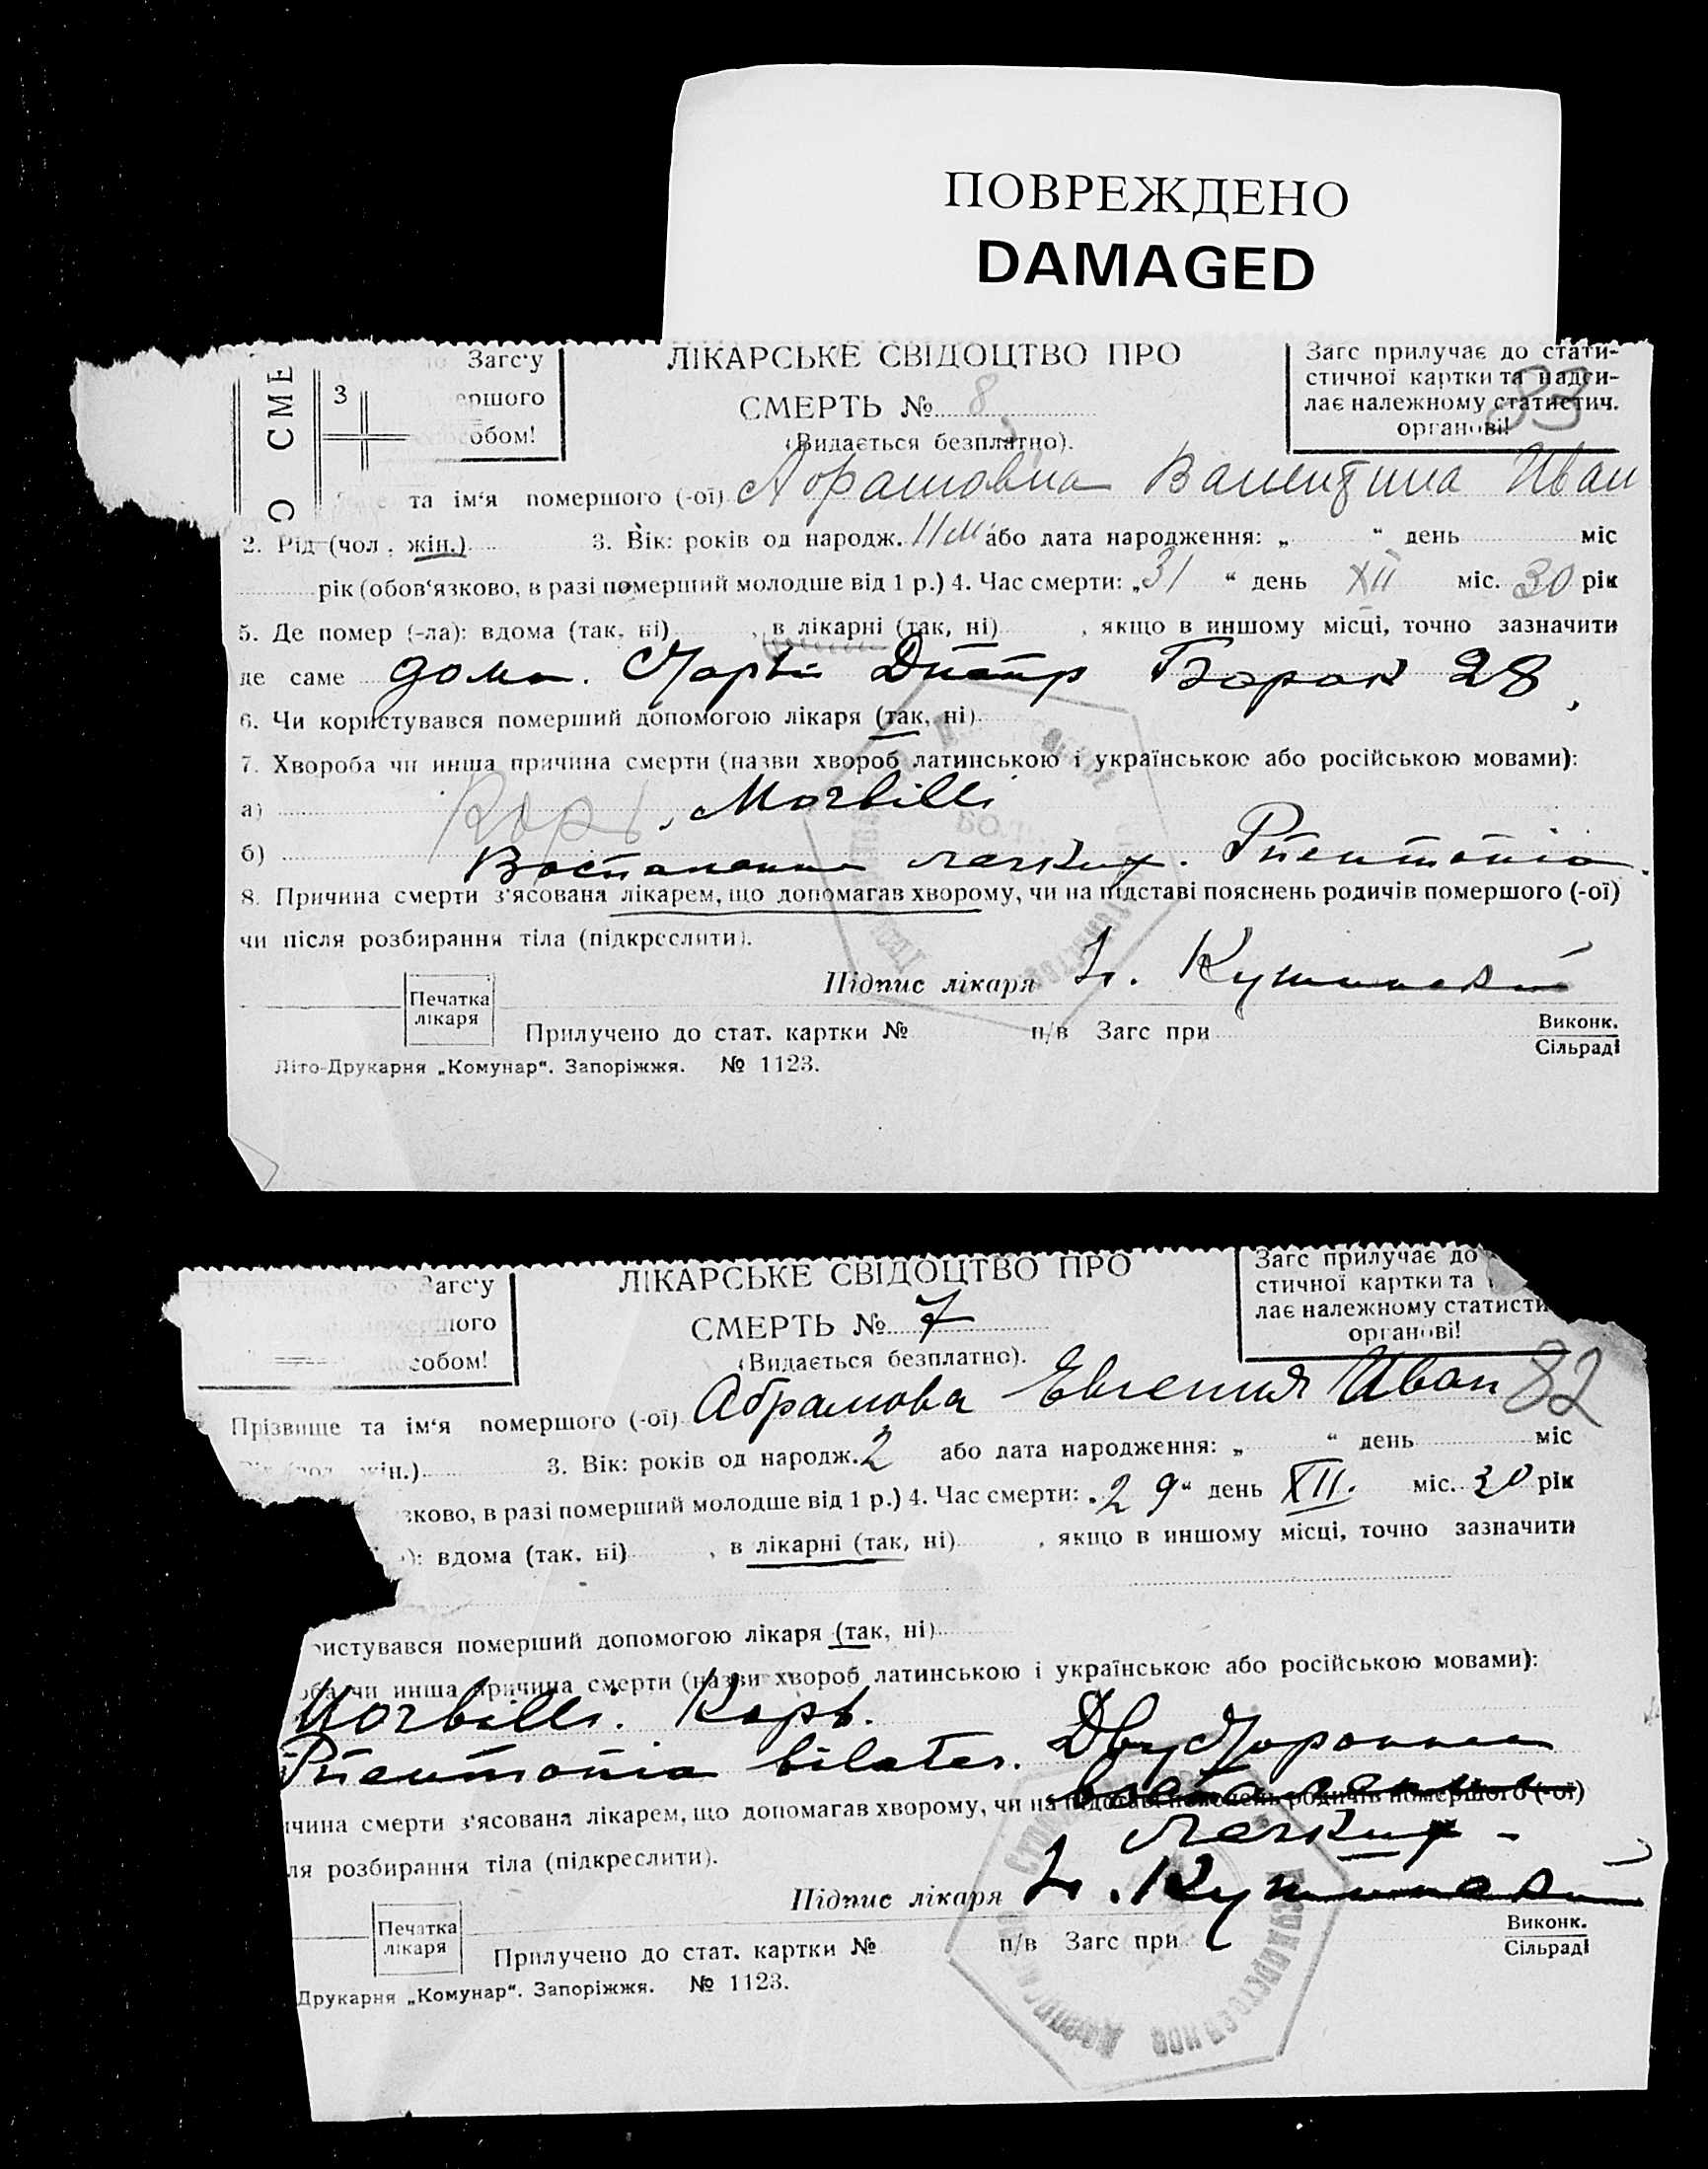 ПОВРЕЖДЕНО
DAMAGED
О СМЕ
З
Загс‘у
ершого
обом!
ЛІКАРСЬКЕ СВІДОЦТВО ПРО
СМЕРТЬ № 8
(Видається безплатно).
Загс прилучає до стати-
стичної картки та надси-
лає належному статистич.
органові!
83
та ім‘я помершого (-ої) Абрамовна Валентина Иван
2. Рід (чол., жін.) 3. Вік: років од народж. 11 м або дата народження: „ “ день міс
рік (обов‘язково, в разі померший молодше від 1 р.) 4. Час смерти: „31 “ день XII міс. 30 рік
5. Де помер (-ла): вдома (так, ні) , в лікарні (так, ні) , якщо в иншому місці, точно зазначити
де саме дома. Днепр Барак 28,
6. Чи користувався померший допомогою лікаря (так, ні)
7. Хвороба чи инша причина смерти (назви хвороб латинською і українською або російською мовами):
а) Корь, Morbilli
б) Воспаление легких. Pneumonia.
8. Причина смерти з‘ясована лікарем, що допомагав хворому, чи на підставі пояснень родичів помершого (-ої)
чи після розбирання тіла (підкреслити).
Підпис лікаря
Печатка
лікаря
Прилучено до стат. картки № п/в Загс при
Виконк.
Сільраді
Літо-Друкарня „Комунар“. Запоріжжя. № 1123.
Загс‘у
ного
собом!
ЛІКАРСЬКЕ СВІДОЦТВО ПРО
СМЕРТЬ № 7
(Видається безплатно).
Загс прилучає до
стичної картки та
лає належному статисти
органові!
82
Прізвище та ім‘я помершого (-ої) Абрамова Евгения Иван
жін.) 3. Вік: років од народж. 2 або дата народження: „ “ день міс
зково, в разі померший молодше від 1 р.) 4. Час смерти: „29“ день XII. міс. 30 рік
): вдома (так, ні) , в лікарні (так, ні) , якщо в иншому місці, точно зазначити
ристувався померший допомогою лікаря (так, ні)
оба чи инша причина смерти (назви хвороб латинською і українською або російською мовами):
Morbilli. Корь.
Pneumonia bilater. Двусторонная
воспаление
ичина смерти з‘ясована лікарем, що допомагав хворому, чи на підставі пояснень родичів помершого (-ої)
легких -
ля розбирання тіла (підкреслити).
Підпис лікаря
Печатка
лікаря
Прилучено до стат. картки № п/в Загс при
Виконк.
Сільраді
Друкарня „Комунар“. Запоріжжя. № 1123.